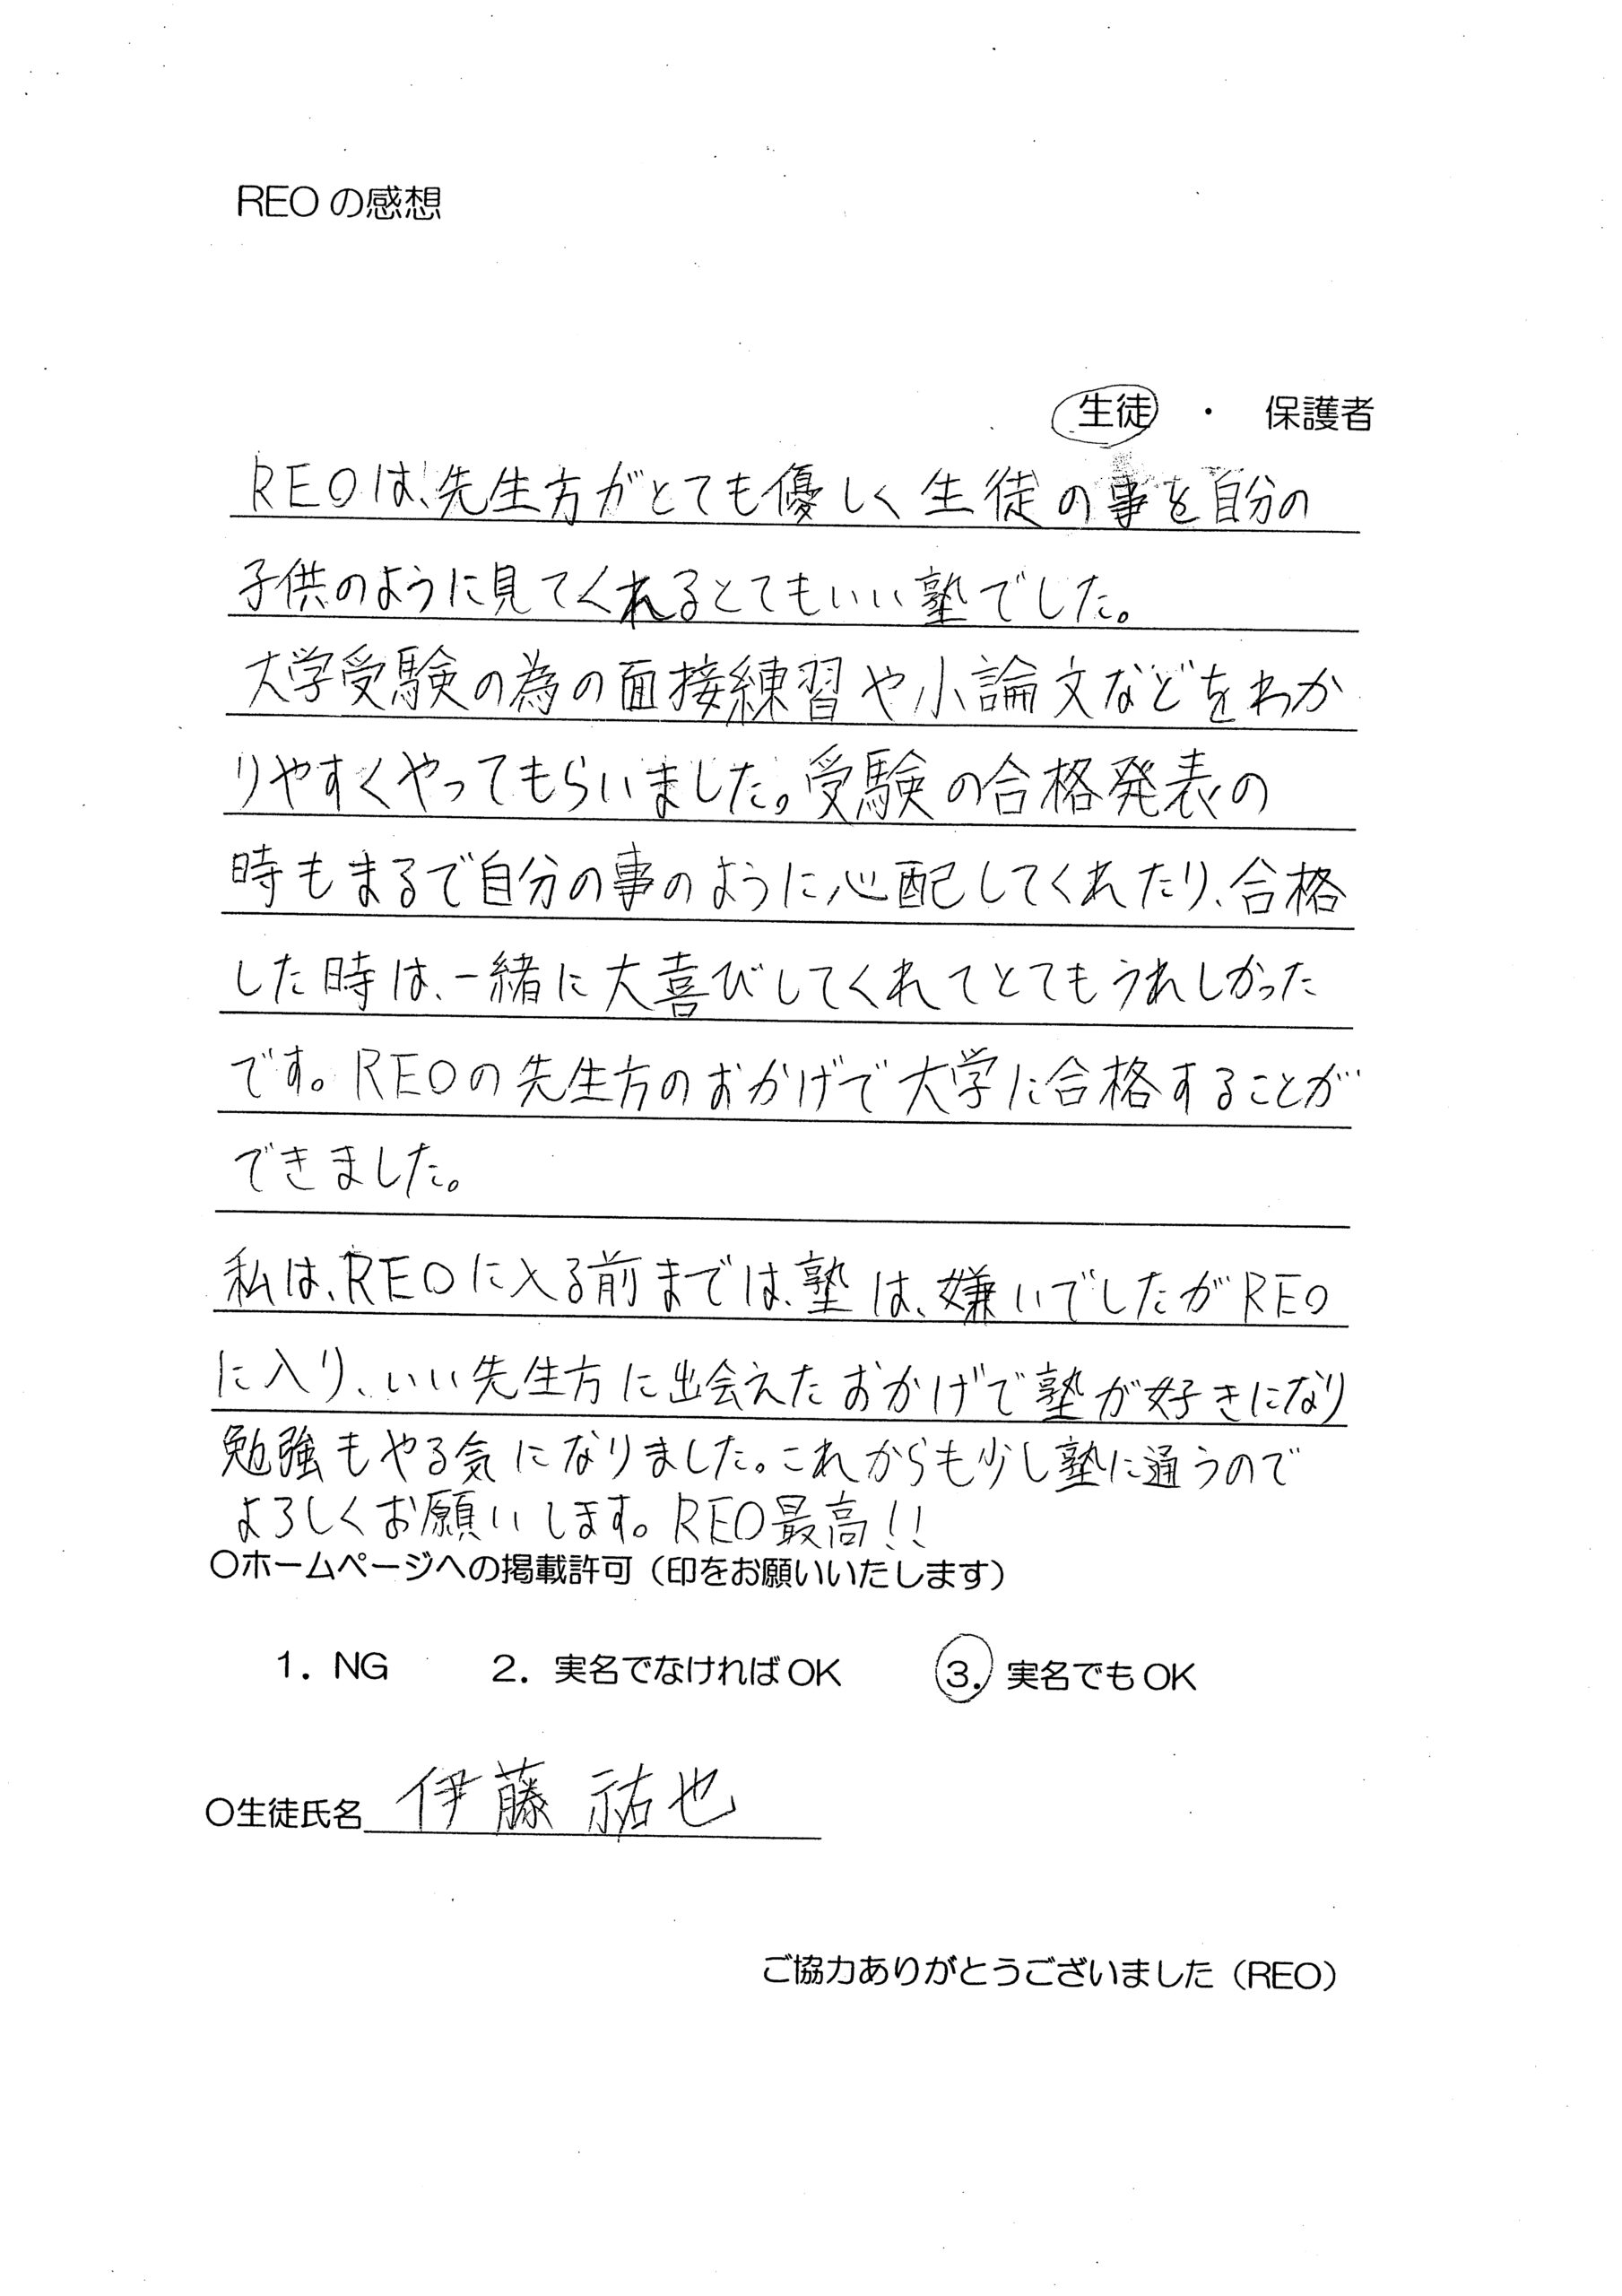 REOの感想
生徒 ・ 保護者
REOは、先生方がとても優しく生徒の事を自分の
子供のように見てくれるとてもいい塾でした。
大学受験の為の面接練習や小論文などをわか
りやすくやってもらいました。受験の合格発表の
時もまるで自分の事のように心配してくれたり、合格
した時は、一緒に大喜びしてくれてとてもうれしかった
です。REOの先生方のおかげで大学に合格することが
できました。
私は、REOに入る前までは、塾は、嫌いでしたがREO
に入り、いい先生方に出会えたおかげで塾が好きになり
勉強もやる気になりました。これからも少し塾に通うので
よろしくお願いします。REO最高!!
〇ホームページへの掲載許可（印をお願いいたします）
1. NG 2. 実名でなければOK 3. 実名でもOK
〇生徒氏名 伊藤 祐也
ご協力ありがとうございました（REO）